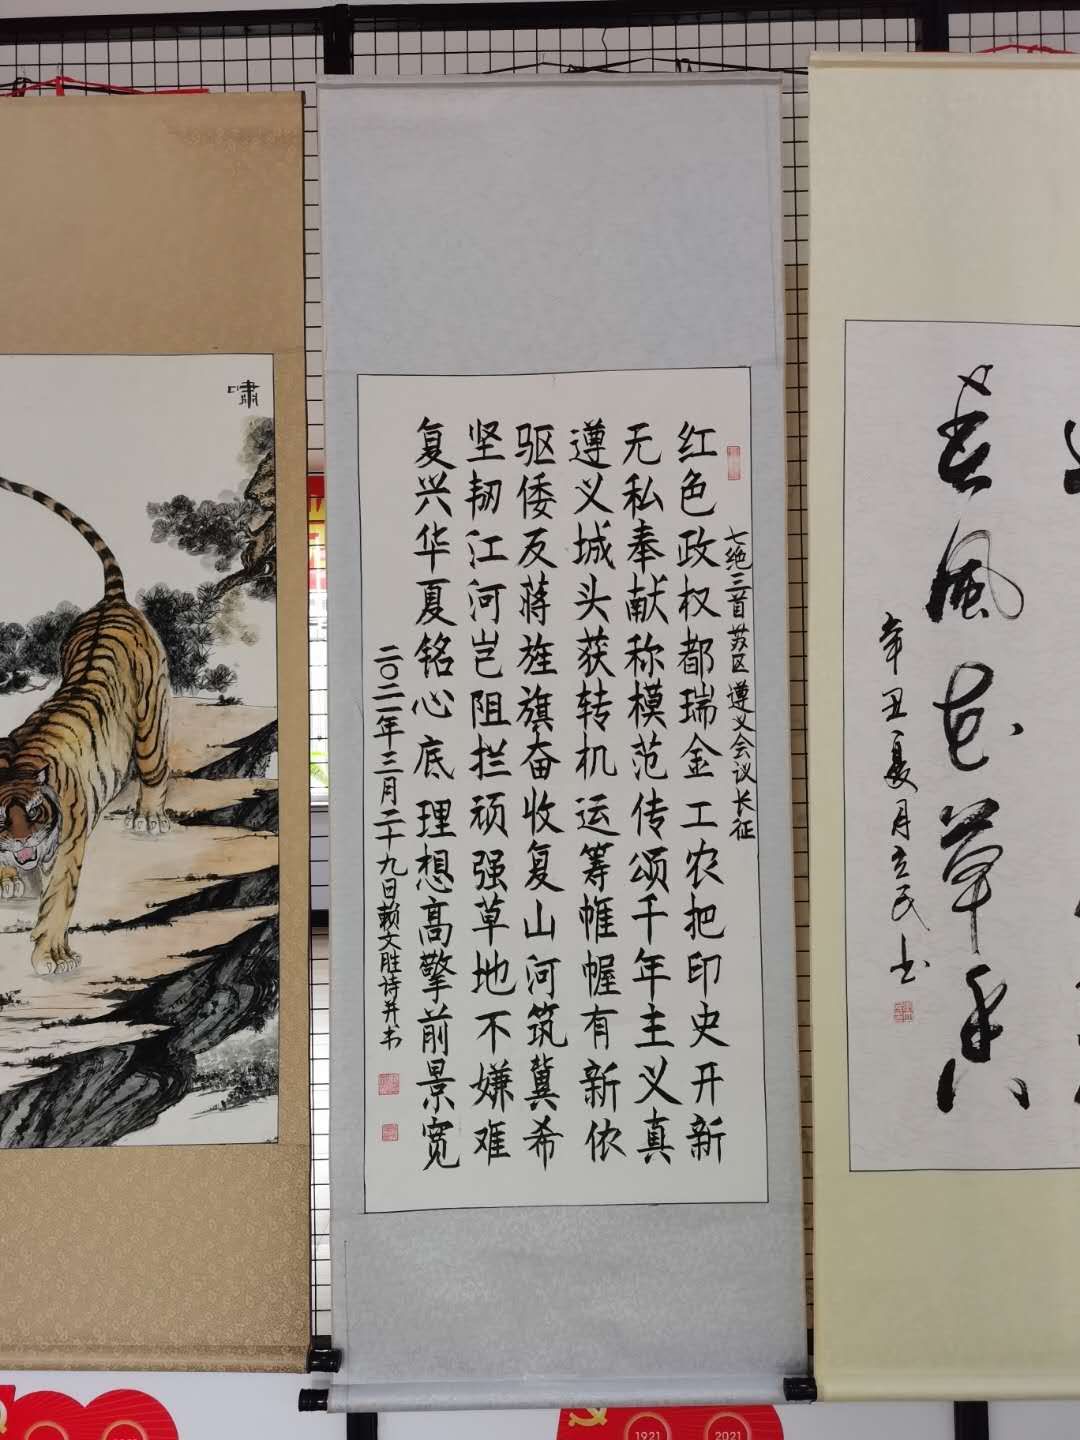 七绝三首苏区遵义会议长征
红色政权都瑞金工农把印史开新
无私奉献称模范传颂千年主义真
遵义城头获转机运筹帷幄有新依
驱倭反蒋旌旗奋收复山河筑冀希
坚韧江河岂阻拦顽强草地不嫌难
复兴华夏铭心底理想高擎前景宽
二〇二一年三月二十九日赖文胜诗并书
春风花草香
辛丑夏月立民书
啸
1921
2021